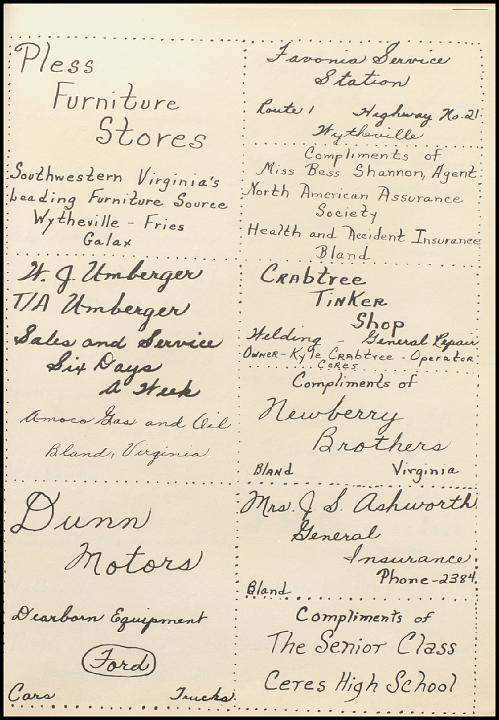 Pless
Furniture
Stores
Southwestern Virginia's
Leading Furniture Source
Wytheville - Fries
Galax
W. J. Umberger
T/A Umberger
Sales and Service
Six Days
A Week
Amoco Gas and Oil
Bland, Virginia
Dunn
Motors
Dearborn Equipment
Ford
Cars Trucks
Favonia Service
Station
Route 1 Highway No. 21
Wytheville
Compliments of
Miss Bess Shannon, Agent
North American Assurance
Society
Health and Accident Insurance
Bland
Crabtree
Tinker
Shop
Welding - General Repair
Owner - Kyle Crabtree - Operator
Ceres
Compliments of
Newberry
Brothers
Bland Virginia
Mrs. J. S. Ashworth
General
Insurance
Phone - 2384
Bland
Compliments of
The Senior Class
Ceres High School